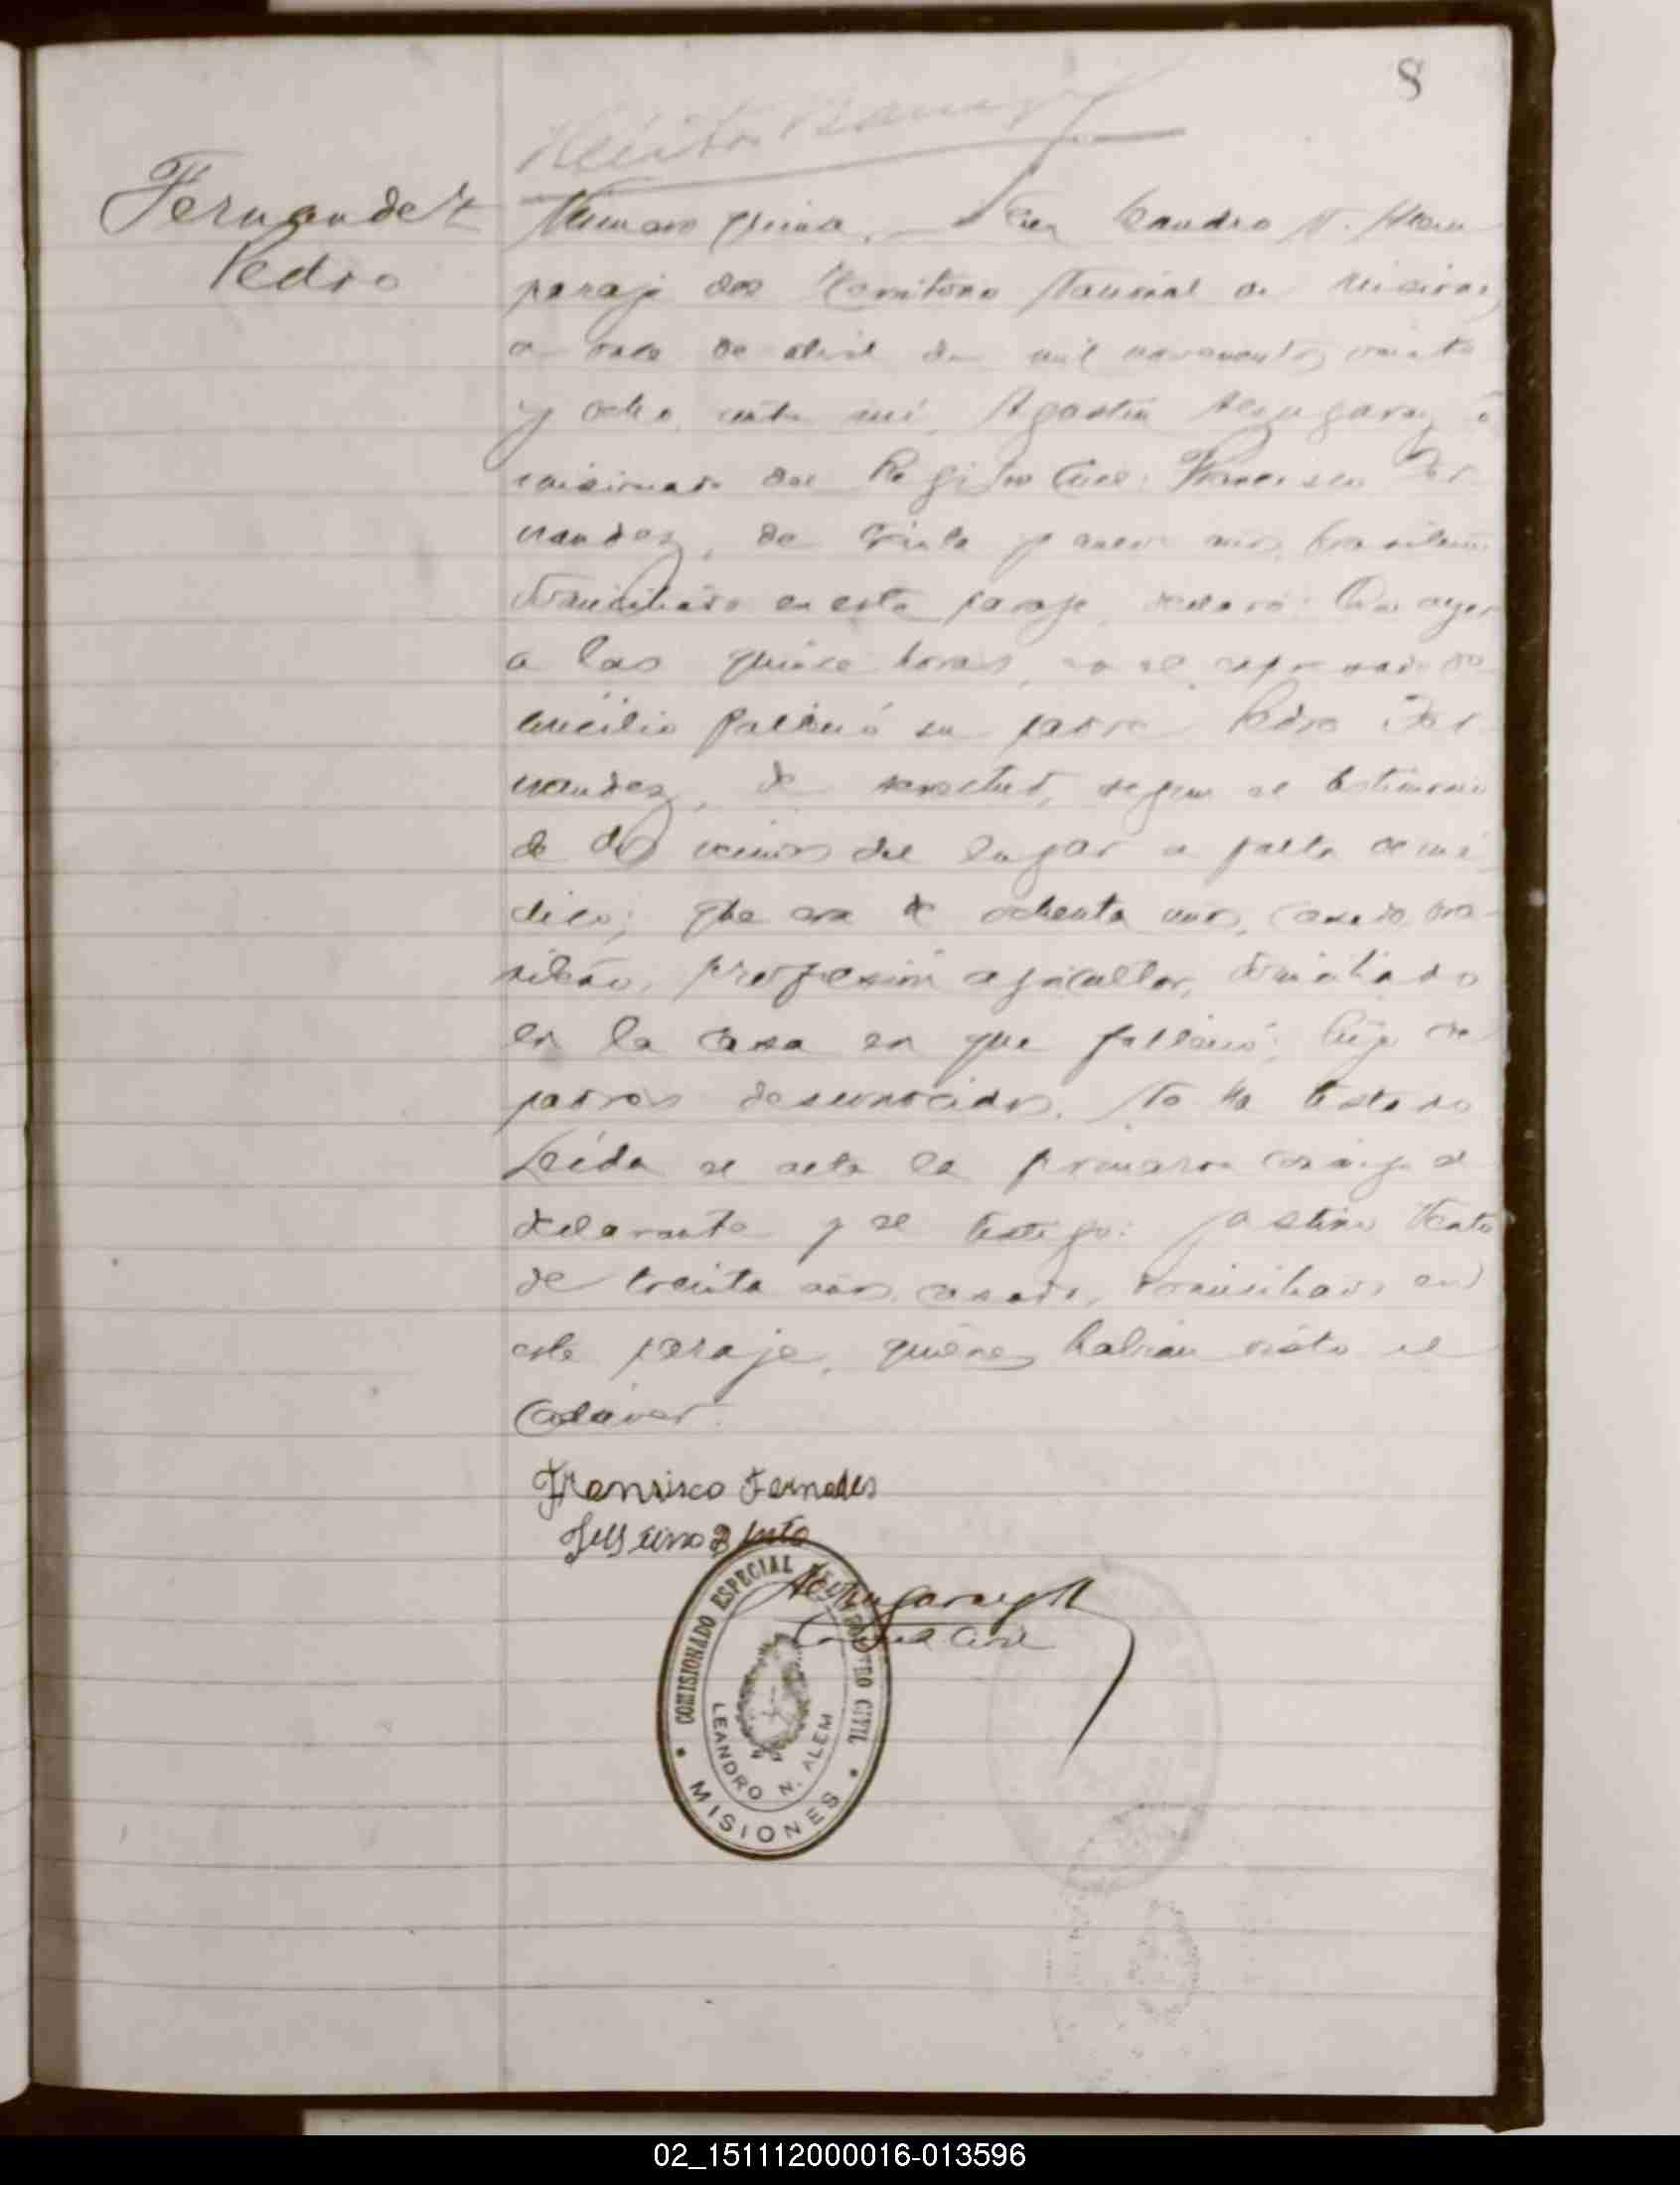 8
Fernandez
Pedro
Numero quince. En Leandro N. Alem
paraje del Territorio Nacional de Misiones,
a once de abril de mil novecientos veinte
y ocho, ante mi, Agustin
comisionado del Registro Civil: Francisco Fer
nandez, de años, brasileño
domiciliado en este paraje, declaró: Que ayer
a las quince horas, en el expresado do
micilio falleció su padre Pedro Fer
nandez, de senectud, segun el testimonio
de dos vecinos del lugar a falta de mé
dico; que era de ochenta años, casado, bra
sileño, profesión agricultor, domiciliado
en la casa en que falleció; hijo de
padres desconocidos. No ha testado
Leída el acta la firmaron conmigo el
declarante y el testigo:
de treinta años, casado, domiciliado en
este paraje, quienes habian visto el
Cadáver.
Fransisco Fernades
COMISIONADO ESPECIAL DEL REGISTRO CIVIL
LEANDRO N. ALEM
MISIONES
02_151112000016-013596